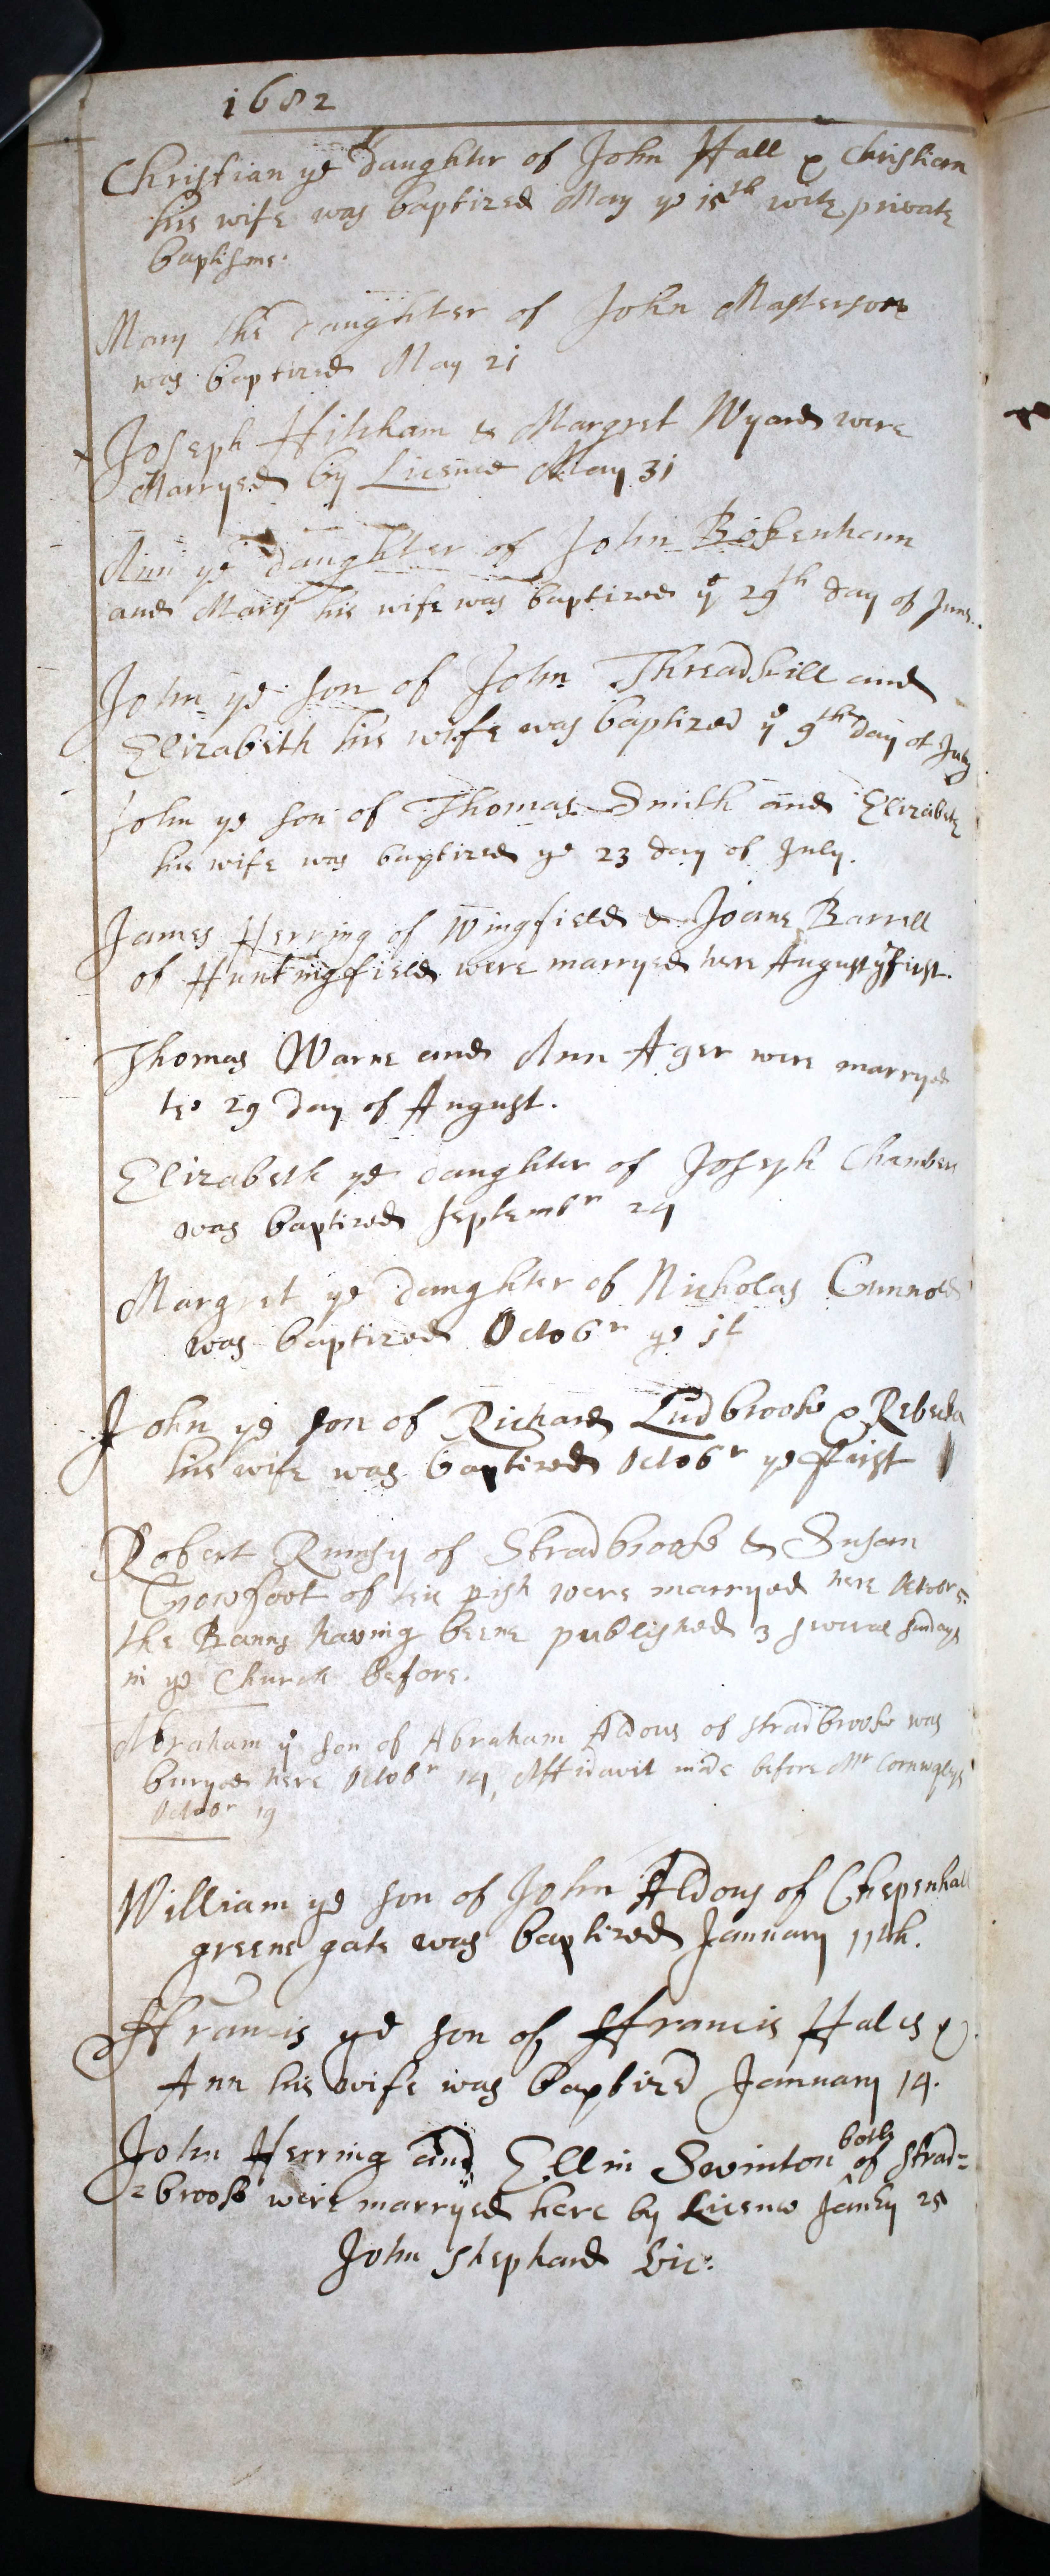 1682
Christian ye daughter of John Hall & Christian
his wife was baptized May ye 15th with private
baptisme.
Mary the daughter of John Masterson
was baptized May 21
Joseph & Margret Wyard were
Marryed by Licence May 31
Ann ye daughter of John Bokenham
and Mary his wife was baptized ye 29th day of June.
John ye son of John Threadkill and
Elizabeth his wife was baptized ye 9th day of July
John ye son of Thomas Smith and Elizabeth
his wife was baptized ye 23 day of July.
James Herring of Wingfield & Joane Barrell
of Huntingfield were marryed here August ye first.
Thomas Warne and Ann Ager were marryed
the 29 day of August.
Elizabeth ye daughter of Joseph Chambers
was baptized Septembr 24
Margret ye daughter of Nicholas
was baptized Octobr ye 1t
John ye son of Richard Ludbrooke & Rebecka
his wife was baptized Octobr ye ffirst
Robert of Stradbrooke & Susan
Crowfoot of this pish were marryed here
the Banns having beene published 3 severall sundays
in ye Church before.
Abraham ye son of Abraham Aldous of Stradbrooke was
buryed here Octobr 14, Affidavit made before Mr Cornwaleys
Octobr 19
William ye son of John Aldous of Chepenhall
greene gate was baptized January 11th.
Ffrancis ye son of Ffrancis Hales &
Ann his wife was baptized January 14.
John Herring and Ellin Swinton both of Strad=
=brooke were marryed here by Licence Janry 25
John Shephard Vic: